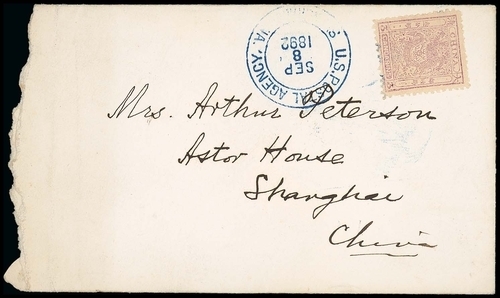 U.S. POSTAL AGENCY
SEP
8
1892
Mrs. Arthur Peterson
Astor House
Shanghai
China